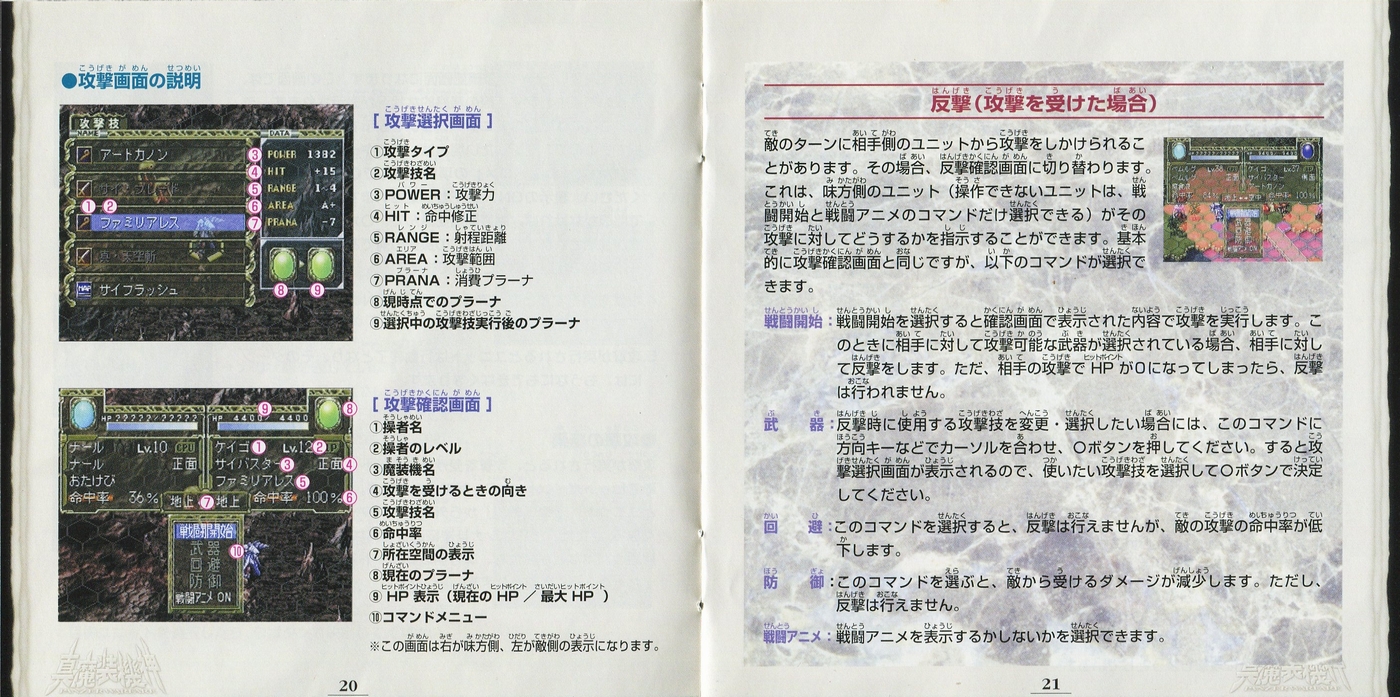 ●攻撃画面の説明
攻撃技
NAME
DATA
アートカノン
ファミリアレス
サイフラッシュ
MAP
POWER 1382
HIT +15
RANGE 1-4
AREA A+
PRANA -7
① ② ③ ④ ⑤ ⑥ ⑦ ⑧ ⑨
[ 攻撃選択画面 ]
①攻撃タイプ
②攻撃技名
③POWER：攻撃力
④HIT：命中修正
⑤RANGE：射程距離
⑥AREA：攻撃範囲
⑦PRANA：消費プラーナ
⑧現時点でのプラーナ
⑨選択中の攻撃技実行後のプラーナ
HP ??????/?????? HP 4400/ 4400
ナール Lv.10 CPU ケイゴ Lv.12
ナール 正面 サイバスター 正面
おたけび ファミリアレス
命中率 36% 地上 地上 命中率 100%
戦闘開始
武 器
回 避
防 御
戦闘アニメ ON
[ 攻撃確認画面 ]
①操者名
②操者のレベル
③魔装機名
④攻撃を受けるときの向き
⑤攻撃技名
⑥命中率
⑦所在空間の表示
⑧現在のプラーナ
⑨HP 表示（現在の HP ／ 最大 HP ）
⑩コマンドメニュー
※この画面は右が味方側、左が敵側の表示になります。
20
反撃（攻撃を受けた場合）
敵のターンに相手側のユニットから攻撃をしかけられるこ
とがあります。その場合、反撃確認画面に切り替わります。
これは、味方側のユニット（操作できないユニットは、戦
闘開始と戦闘アニメのコマンドだけ選択できる）がその
攻撃に対してどうするかを指示することができます。基本
的に攻撃確認画面と同じですが、以下のコマンドが選択で
きます。
戦闘開始：戦闘開始を選択すると確認画面で表示された内容で攻撃を実行します。こ
のときに相手に対して攻撃可能な武器が選択されている場合、相手に対し
て反撃をします。ただ、相手の攻撃で HP が0になってしまったら、反撃
は行われません。
武 器：反撃時に使用する攻撃技を変更・選択したい場合には、このコマンドに
方向キーなどでカーソルを合わせ、○ボタンを押してください。すると攻
撃選択画面が表示されるので、使いたい攻撃技を選択して○ボタンで決定
してください。
回 避：このコマンドを選択すると、反撃は行えませんが、敵の攻撃の命中率が低
下します。
防 御：このコマンドを選ぶと、敵から受けるダメージが減少します。ただし、
反撃は行えません。
戦闘アニメ：戦闘アニメを表示するかしないかを選択できます。
21